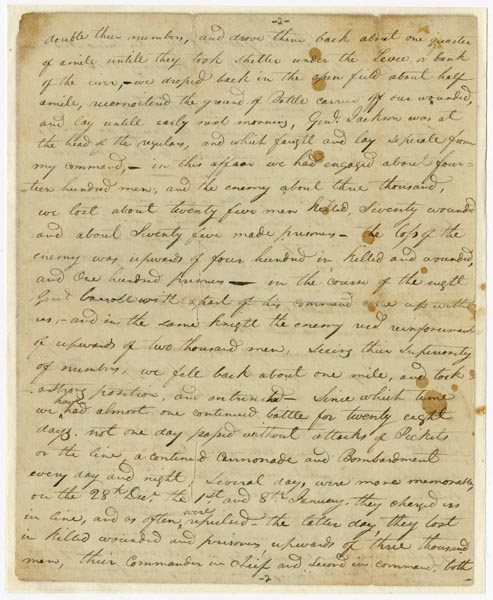 -2-
double their numbers, and drove them back about one quarter
of a mile untile they took shelter under the Levee or bank
of the river, - we droped back in the open field about half
a mile, reconnoitered the ground of Battle carried off our wounded,
and lay untile early next morning, Genl. Jackson was at
the head of the regulars, and which faught and lay seperate from
my command, - in this affair we had engaged about four-
teen hundred men, and the enemy about three thousand,
we lost about twenty five men killed, Seventy wounded
and about Seventy five made prisoners - the loss of the
enemy was upwards of four hundred in killed and wounded,
and One hundred prisoners - in the course of the night
Genl Carroll with a part of his command came up with
us, - and in the same knight the enemy recd reinforcement
of upwards of two thousand men, Seeing thier Superiority
of numbers, we fell back about one mile, and took
a Strong position, and intrenched - Since which time
we have had almost one continued battle for twenty eight
days. not one day passed without attacks of Pickets
or the line, a continued Cannonade and Bombardment
every day and night; Several days, were more memorable,
on the 28th Decr. the 1st and 8th January. they charged us
in line, and as often were repulsed - the latter day, they lost
in killed wounded and prisoners upwards of three thousand
men, their Commander in Cheif and Second in command, both
-2-